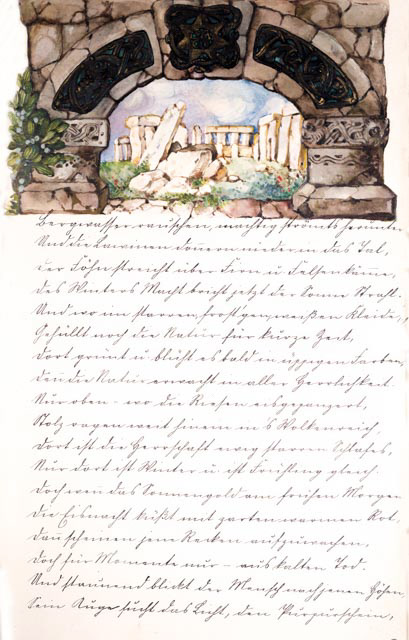 Bergwasser rauschen, mächtig strömts herunter
Und die Lawinen donnern nieder in das Tal,
der Föhn streicht über Firn u Felsenkämme,
des Winters Macht bricht jetzt der Sonne Strahl.
Und wo im starren, frost'gen, weißen Kleide,
Gehüllt noch die Natur für kurze Zeit,
dort grünt u blüht es bald in üppigen Farben,
denn die Natur erwacht in aller Herrlichkeit
Nur oben - wo die Riesen eisgepanzert,
Stolz ragen weit hinein in's Wolkenreich,
dort ist die Herrschaft ewig starren Schlafes,
Nur dort ist Winter u ist Frühling gleich.
doch wenn das Sonnengold am frühen Morgen
die Eisnacht küßt mit zarten warmen Rot,
dan scheinen jene Recken aufzuwachen,
doch für Momente nur - aus kalten Tod.
Und staunend blickt der Mensch nach jenen Höhen,
Sein Auge sucht das Licht, den Purpurschein,